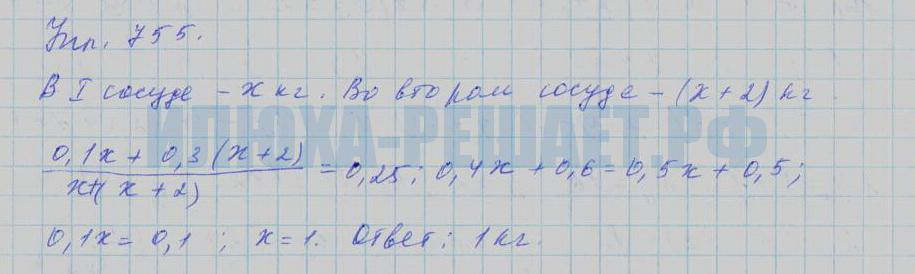 Упр. 755.
В I сосуде - x кг. Во втором сосуде - (x+2) кг.
ИЛЮХА-РЕШАЕТ.РФ
0,1x + 0,3(x+2) / x+(x+2) = 0,25; 0,4x + 0,6 = 0,5x + 0,5;
0,1x = 0,1; x = 1. Ответ: 1 кг.